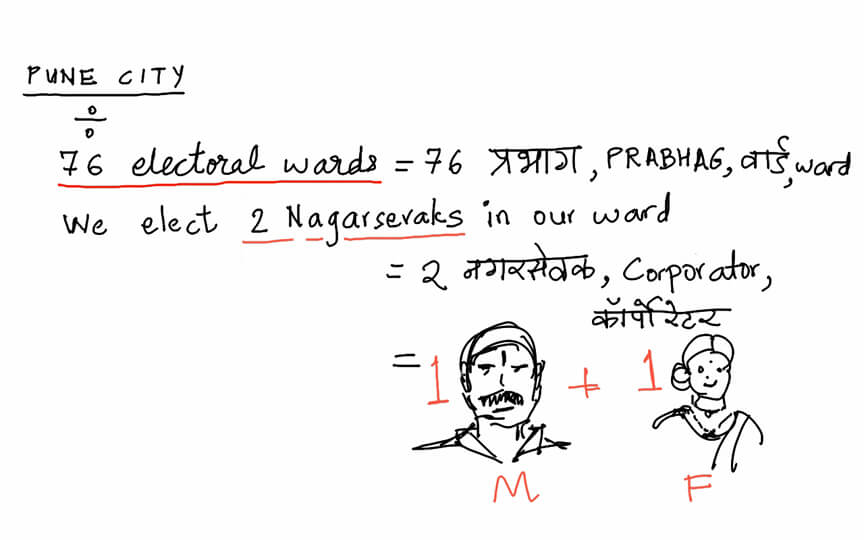 PUNE CITY
÷
76 electoral wards = 76 प्रभाग, PRABHAG, वार्ड, ward
We elect 2 Nagarsevaks in our ward
= 2 नगरसेवक, Corporator,
कॉर्पोरेटर
= 1 + 1
M F